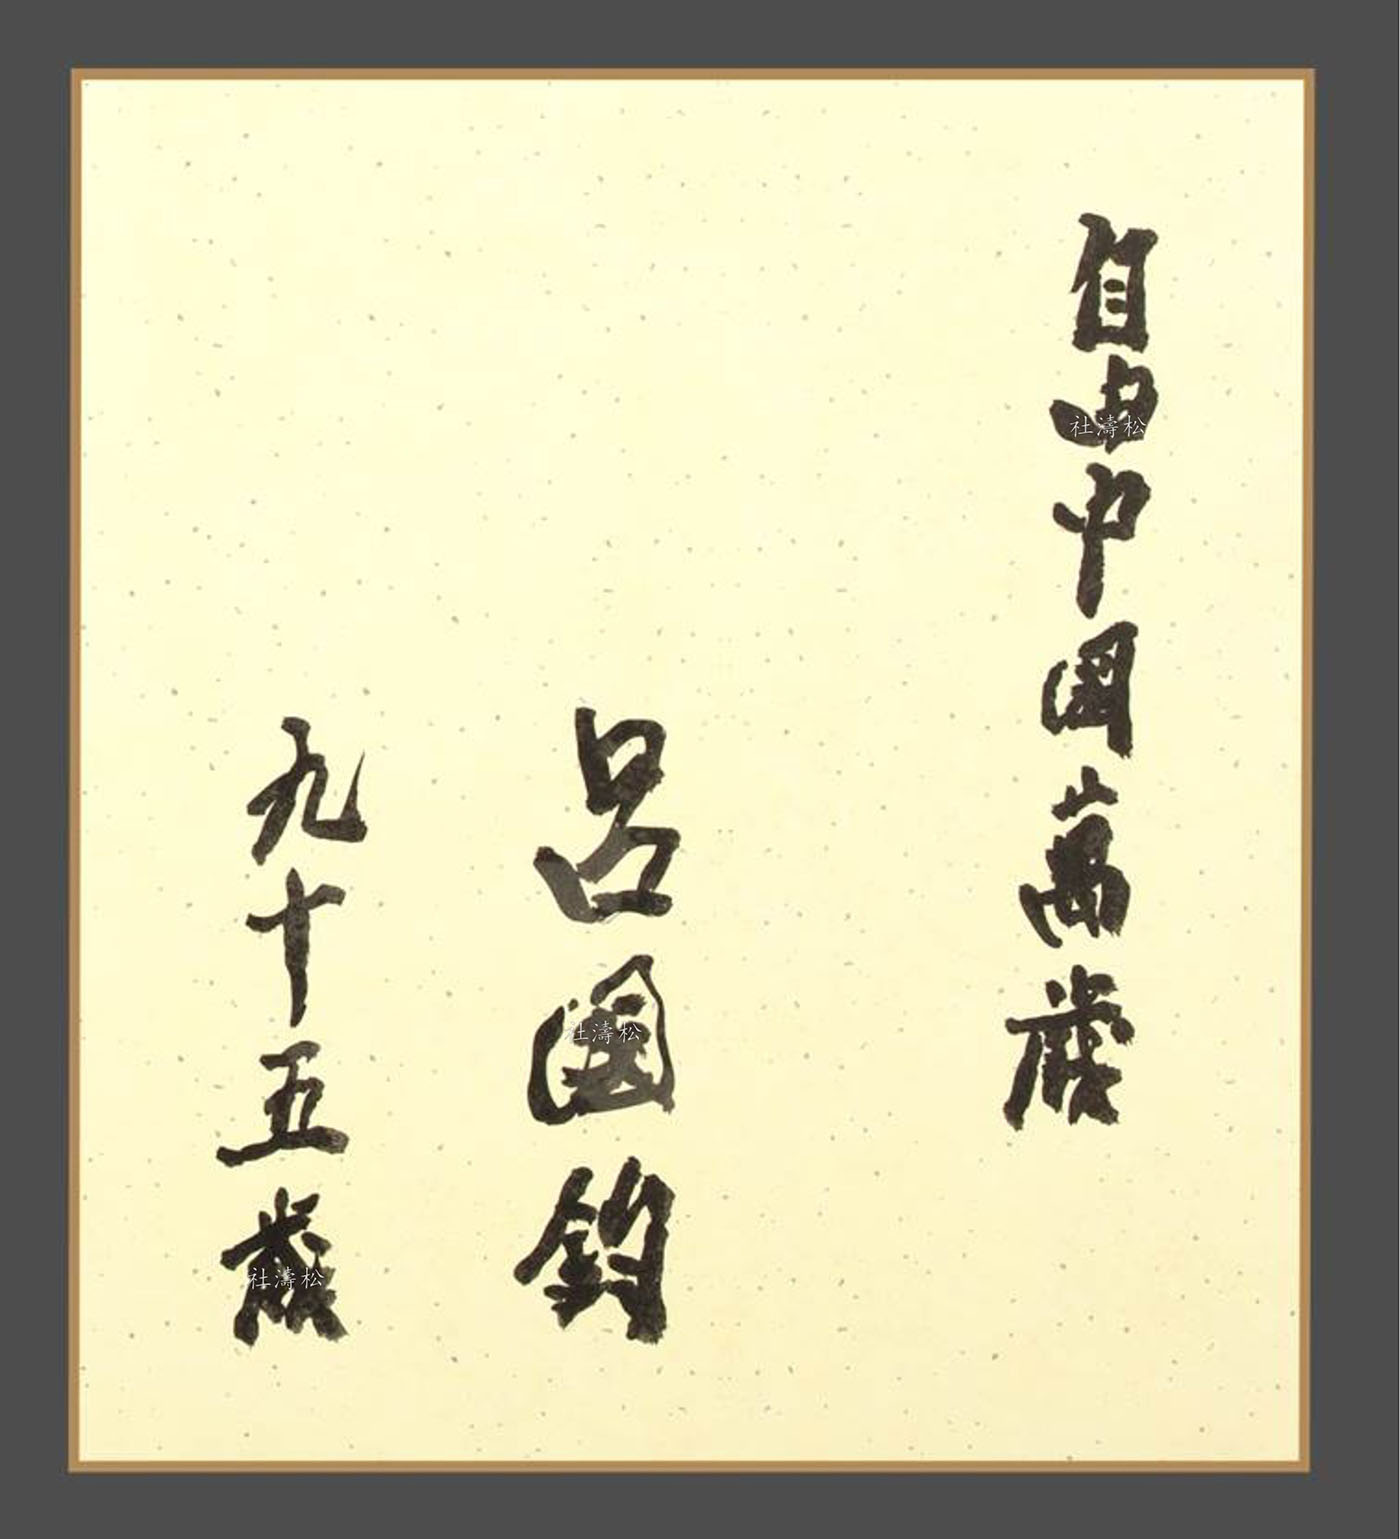 自由中國萬歲
呂國鈞
九十五歲
松濤社
松濤社
松濤社